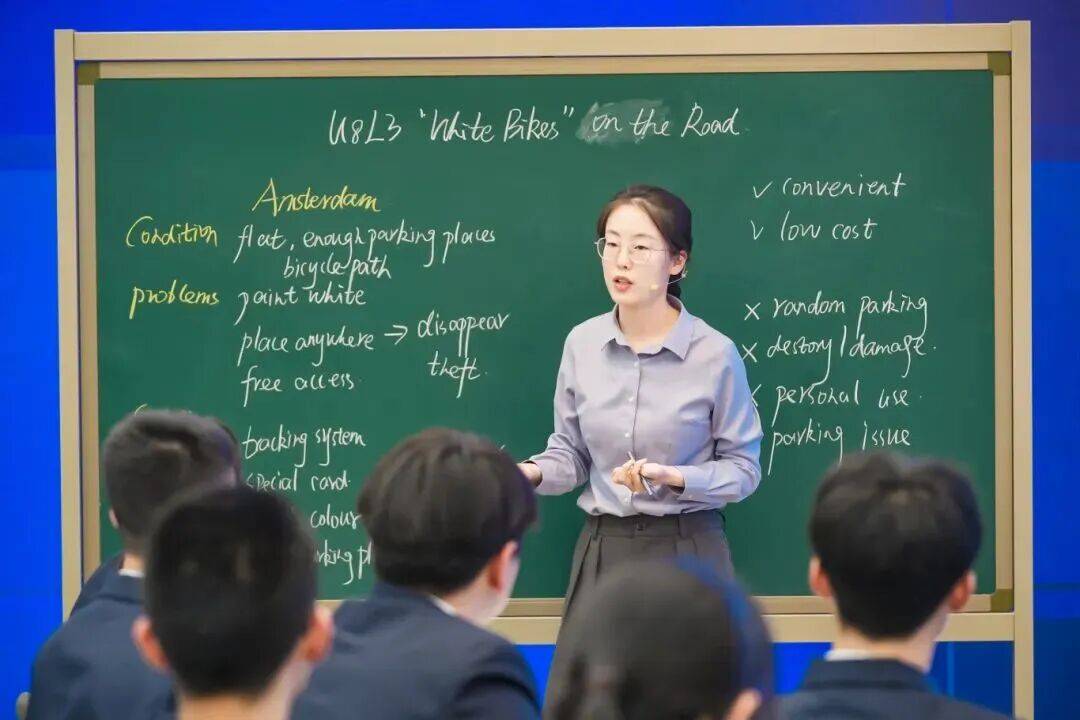 U8L3 "White Bikes" on the Road
Amsterdam
Condition flat, enough parking places
bicycle path
problems paint white
place anywhere → disappear
theft.
free access.
tracking system
special card.
colour
✓ convenient
✓ low cost
× random parking
× destory/damage.
× personal use.
parking issue